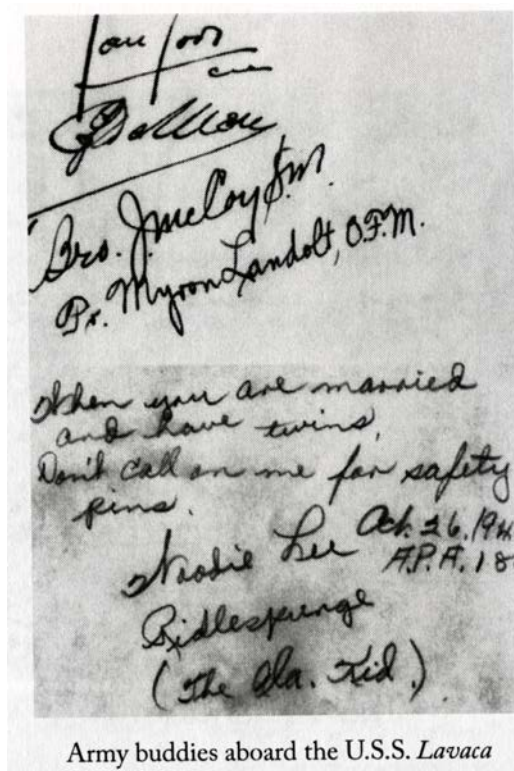 Bro. J. McCoy S.M.
Pr. Myron Landolt, O.F.M.
When you are married
and have twins,
Don't call on me for safety
pins.
Lee Oct. 26, 194
A.P.A. 18
(The Ola. Kid.)
Army buddies aboard the U.S.S. Lavaca